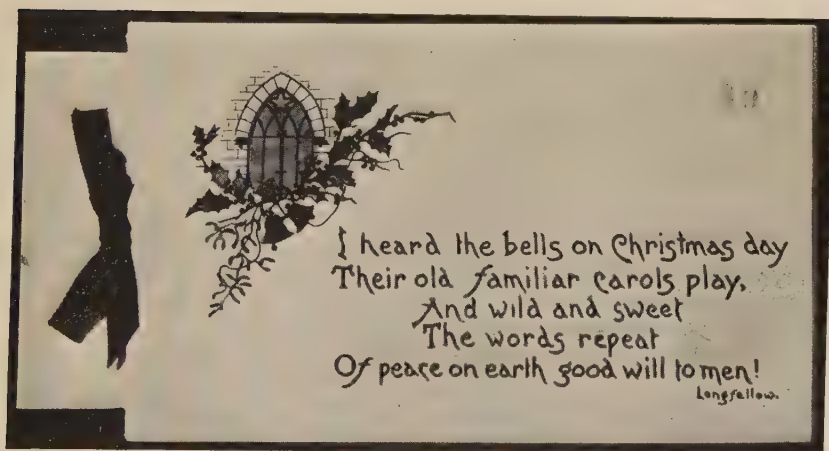 I heard the bells on Christmas day
Their old familiar carols play,
And wild and sweet
The words repeat
Of peace on earth good will to men!
Longfellow.